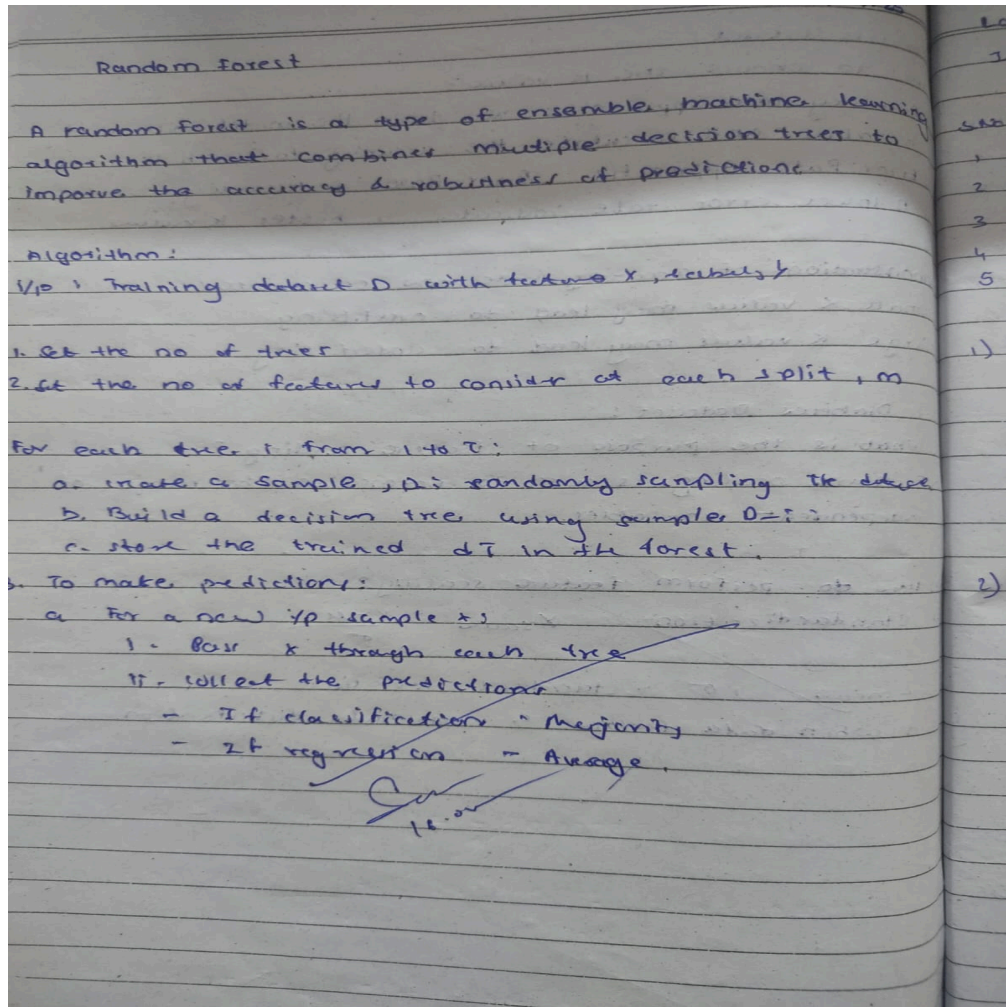 Random forest
A random forest is a type of ensemble machine learning
algorithm that combines multiple decision trees to
imporve the accuracy & robustness of predictions.
Algorithm:
I/p : Training dataset D with feature X, labels y
1. Set the no of trees
2. Set the no of features to consider at each split, m
For each tree i from 1 to T:
a. create a sample, Di randomly sampling the
b. Build a decision tree using sample D=i:
c. store the trained dT in the forest.
3. To make predictions:
a For a new i/p sample x:
i. Pass x through each tree
ii. collect the predictions
- If classification - Majority
- If regression - Average.
2
3
4
5
1)
2)